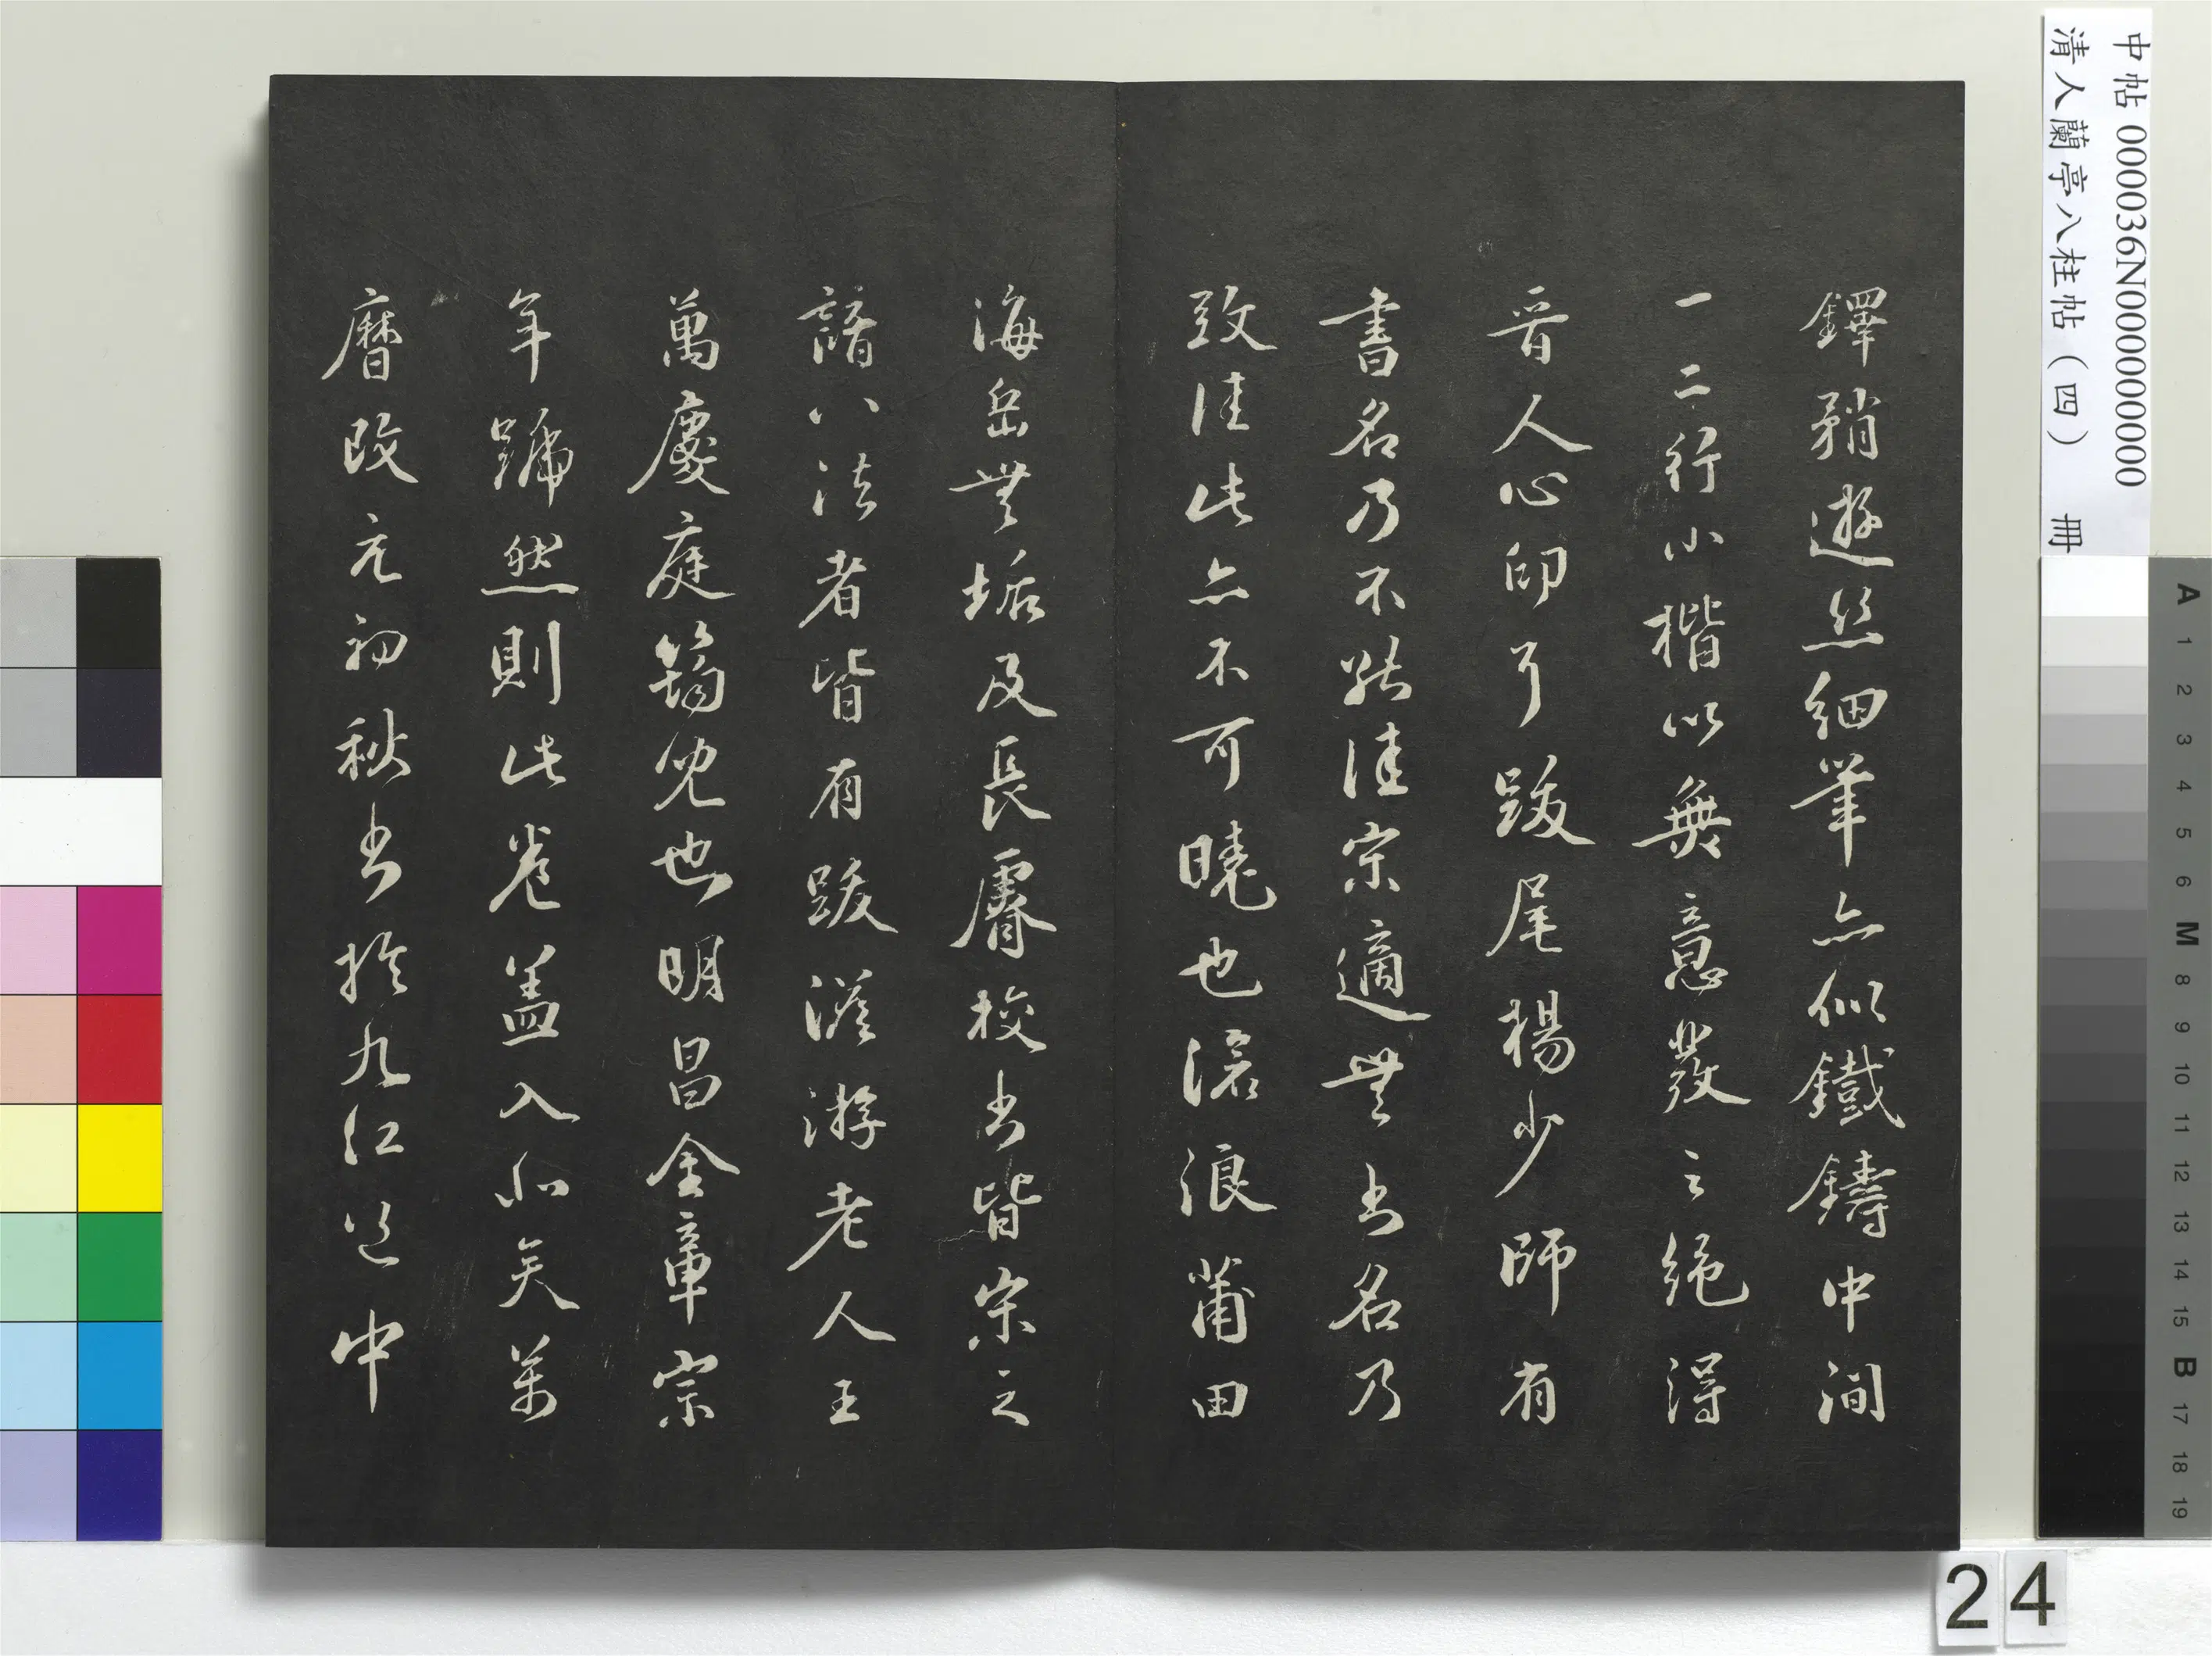 鐸矟遊絲細筆亦似鐵鑄中間
一二行小楷以無意發之絕得
晉人心印了跋尾楊少師有
書名乃不能佳宗適無書名乃
致佳此亦不可曉也滄浪莆田
海岳無垢及長睿校書皆宋之
諳八法者皆有跋澹游老人王
萬慶庭筠兒也明昌金章宗
年號然則此卷蓋入北矣萬
曆改元初秋書於九江道中
中帖 000036N000000000
清人蘭亭八柱帖（四） 冊
A 1 2 3 4 5 6 M 8 9 10 11 12 13 14 15 B 17 18 19
24